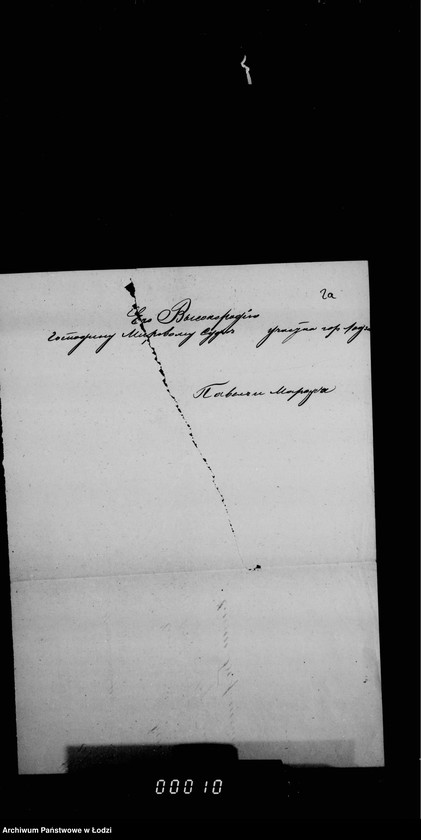 2а
Его Высокородію
Господину Мировому Судьѣ участка гор Лодзи
00010
Archiwum Państwowe w Łodzi